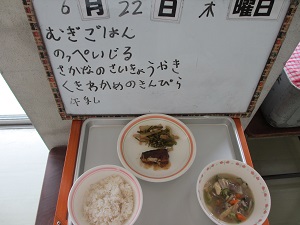 6月22日 木曜日
むぎごはん
のっぺいじる
さかなのさいきょうやき
くきわかめのきんぴら
牛乳